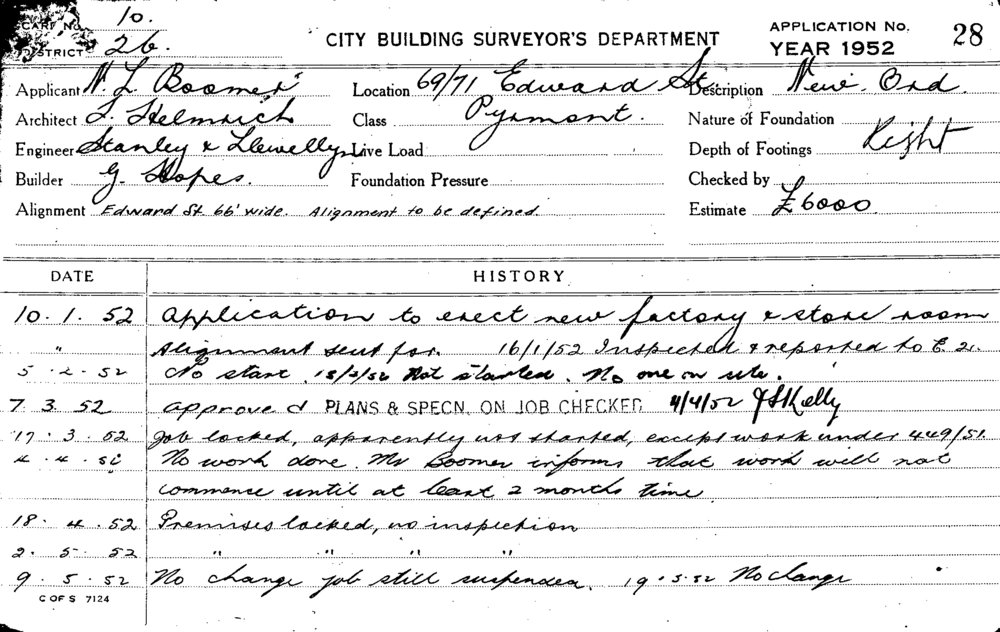 CARD No. 10.
DISTRICT 26.
CITY BUILDING SURVEYOR'S DEPARTMENT
APPLICATION No. 28
YEAR 1952
Applicant N. L. Boomer Location 69/71 Edward St. Description New. Ord.
Architect J. Helmrich Class Pyrmont. Nature of Foundation
Engineer Stanley & Llewellyn Live Load Depth of Footings
Builder G. Hopes. Foundation Pressure Checked by
Alignment Edward St. 66' wide. Alignment to be defined. Estimate £6000
DATE HISTORY
10. 1. 52 Application to erect new factory & store room
" Alignment sent for. 16/1/52 Inspected & reported to
5. 2. 52 No start. 15/2/52 Not started. No one on site.
7. 3. 52 approved PLANS & SPECN. ON JOB CHECKED 4/4/52 Kelly
17. 3. 52 Job locked, apparently not started, except work under 449/51.
4. 4. 52 No work done. Mr Boomer informs that work will not
commence until at least 2 months time
18. 4. 52 Premises locked, no inspection
2. 5. 52 " " " "
9. 5. 52 No change job still suspended. 19.5.52 No change
C OF S 7124